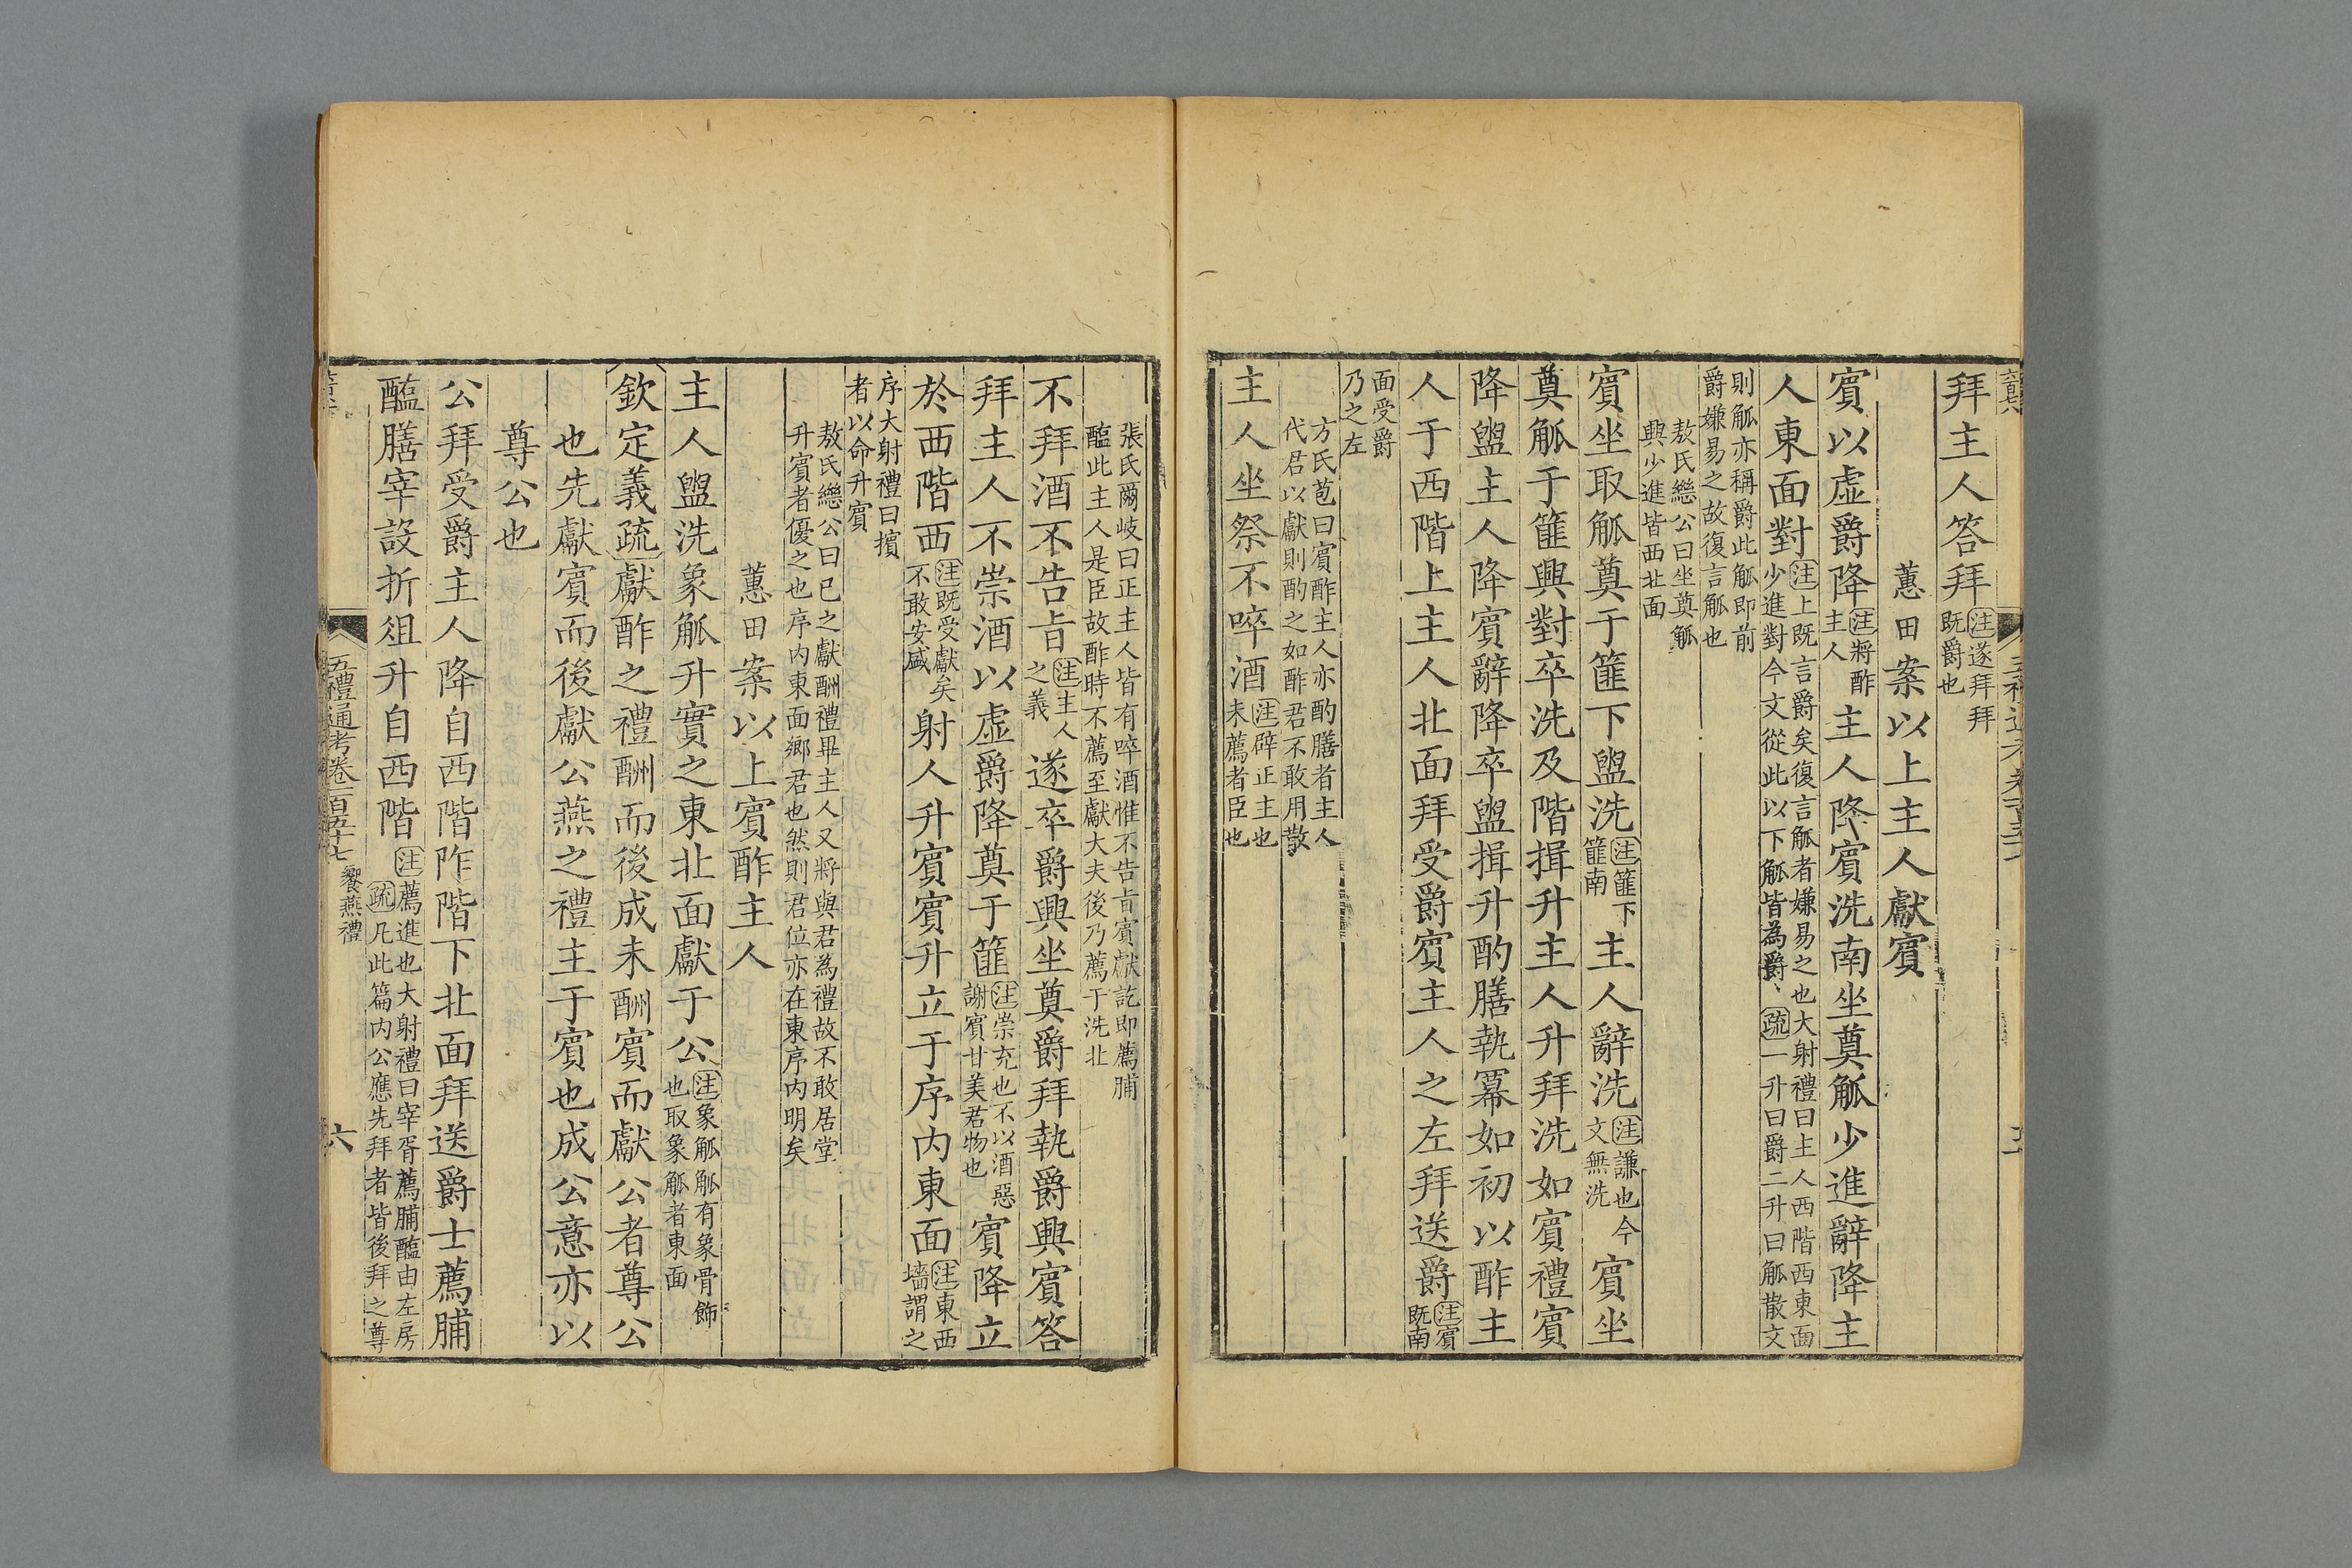 拜主人答拜注遂拜拜既爵也
蕙田案以上主人獻賓
賓以虛爵降注將酢主人主人降賓洗南坐奠觚少進辭降主
人東面對注上既言爵矣復言觚者嫌易之也大射禮曰主人西階西東面少進對今文從此以下觚皆為爵疏一升曰爵二升曰觚散文
則觚亦稱爵此觚即前爵嫌易之故復言觚也
敖氏繼公曰坐奠觚興少進皆西北面
賓坐取觚奠于篚下盥洗注篚下篚南主人辭洗注謙也今文無洗賓坐
奠觚于篚興對卒洗及階揖升主人升拜洗如賓禮賓
降盥主人降賓辭降卒盥揖升酌膳執冪如初以酢主
人于西階上主人北面拜受爵賓主人之左拜送爵注賓既南
面受爵乃之左
方氏苞曰賓酢主人亦酌膳者主人代君以獻則酌之如酢君不敢用散
主人坐祭不啐酒注辟正主也未薦者臣也
張氏爾岐曰正主人皆有啐酒惟不告旨賓獻訖即薦脯醢此主人是臣故酢時不薦至獻大夫後乃薦于洗北
不拜酒不告旨注主人之義遂卒爵興坐奠爵拜執爵興賓答
拜主人不崇酒以虛爵降奠于篚注崇充也不以酒惡謝賓甘美君物也賓降立
於西階西注既受獻矣不敢安盛射人升賓賓升立于序內東面注東西墻謂之
序大射禮曰擯者以命升賓
敖氏繼公曰已之獻酬禮畢主人又將與君為禮故不敢居堂升賓者優之也序內東面鄉君也然則君位亦在東序內明矣
蕙田案以上賓酢主人
主人盥洗象觚升實之東北面獻于公注象觚觚有象骨飾也取象觚者東面
欽定義疏獻酢之禮酬而後成未酬賓而獻公者尊公
也先獻賓而後獻公燕之禮主于賓也成公意亦以
尊公也
公拜受爵主人降自西階阼階下北面拜送爵士薦脯
醢膳宰設折俎升自西階注薦進也大射禮曰宰胥薦脯醢由左房疏凡此篇內公應先拜者皆後拜之尊
五禮通考卷一百五十七饗燕禮
六